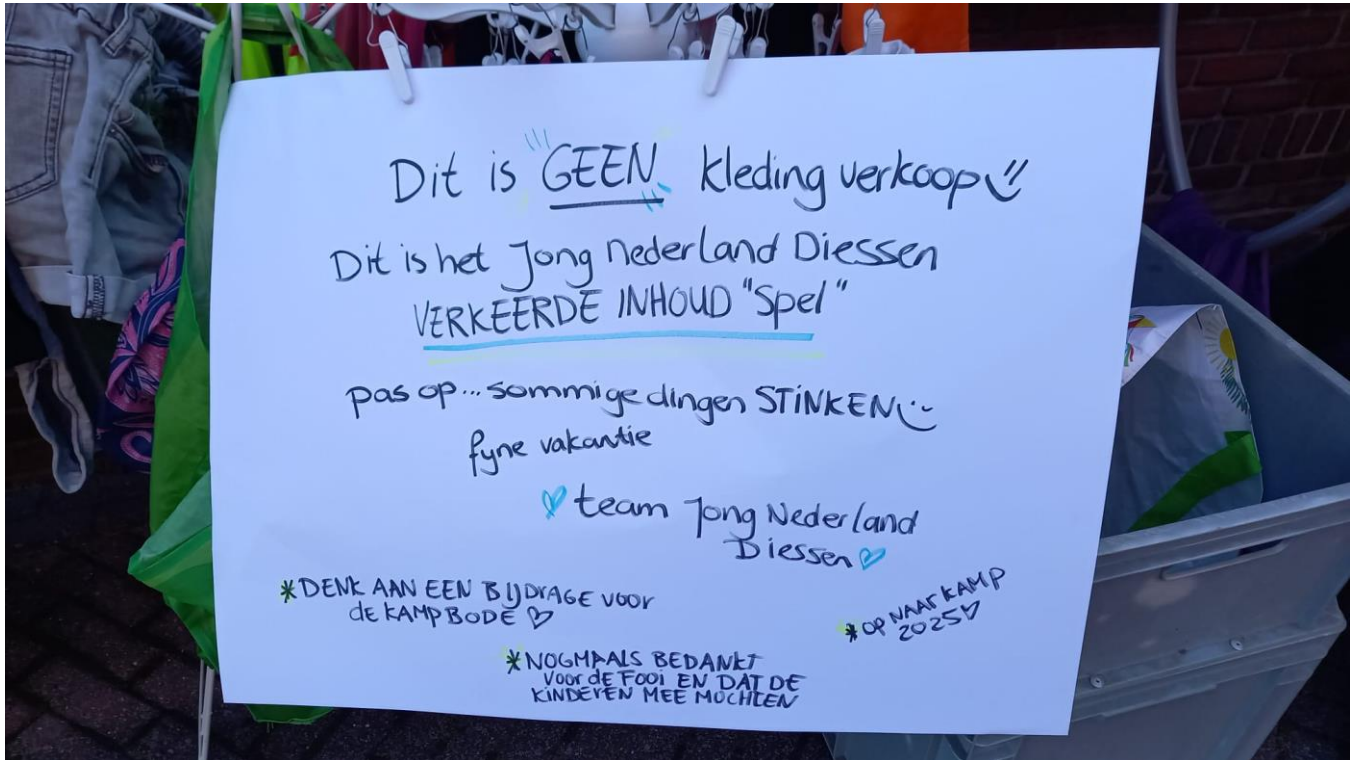 Dit is GEEN kleding verkoop
Dit is het Jong Nederland Diessen
VERKEERDE INHOUD "Spel"
pas op... sommige dingen STINKEN
fyne vakantie
team Jong Nederland
Diessen
*DENK AAN EEN BIJDRAGE VOOR
de KAMPBODE
*OP NAAR KAMP
2025
*NOGMAALS BEDANKT
Voor de FOOI EN DAT DE
KINDEREN MEE MOCHTEN